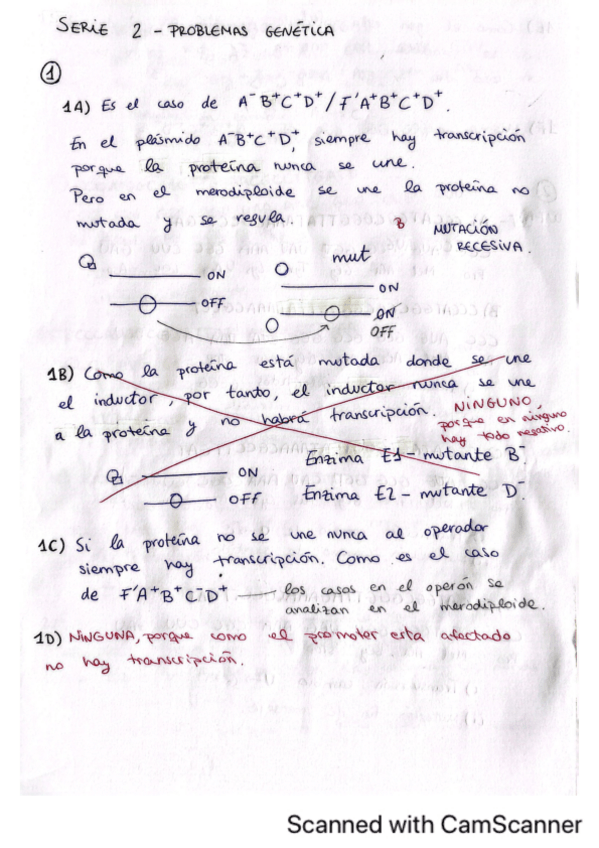 SERIE 2 - PROBLEMAS GENÉTICA
1
1A) Es el caso de A⁻B⁺C⁺D⁺/F'A⁺B⁺C⁺D⁺.
En el plásmido A⁻B⁺C⁺D⁺, siempre hay transcripción
porque la proteína nunca se une.
Pero en el merodiploide se une la proteína no
mutada y se regula.
MUTACIÓN
RECESIVA.
mut
ON
OFF
ON
ON
OFF
1B) Como la proteína está mutada donde se une
el inductor, por tanto, el inductor nunca se une
a la proteína y no habrá transcripción.
NINGUNO,
porque en ninguno
hay todo negativo.
ON
OFF
Enzima E1 - mutante B⁻
Enzima E2 - mutante D⁻
1C) Si la proteína no se une nunca al operador
siempre hay transcripción. Como es el caso
de F'A⁺B⁺C⁻D⁺
los casos en el operón se
analizan en el merodiploide.
1D) NINGUNA, porque como el promotor esta afectado
no hay transcripción.
Scanned with CamScanner